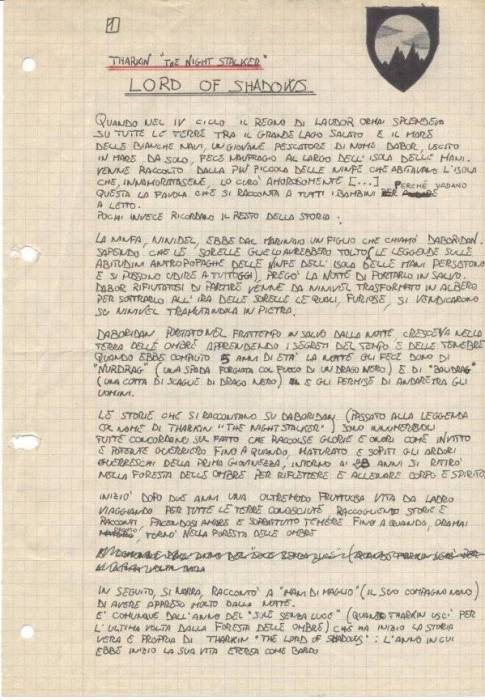 1
THARKIN "THE NIGHT STALKER"
LORD OF SHADOWS
QUANDO NEL IV CICLO IL REGNO DI LAUDOR ORMAI SPLENDEVA
SU TUTTE LE TERRE TRA IL GRANDE LAGO SALATO E IL MARE
DELLE BIANCHE NAVI, UN GIOVANE PESCATORE DI NOME DABOR, USCITO
IN MARE DA SOLO, FECE NAUFRAGIO AL LARGO DELL'ISOLA DELLE MANI.
VENNE RACCOLTO DALLA PIU' PICCOLA DELLE NINFE CHE ABITAVANO L'ISOLA
CHE, INNAMORATASENE, LO CURO' AMOREVOLMENTE [...]
QUESTA LA FAVOLA CHE SI RACCONTA A TUTTI I BAMBINI PERCHÉ VADANO
A LETTO.
POCHI INVECE RICORDANO IL RESTO DELLA STORIA.
LA NINFA, NINIDEL, EBBE DAL MARINAIO UN FIGLIO CHE CHIAMO' DABORIDAN.
SAPENDO CHE LE SORELLE GUELOAVREBBERO TOLTO (LE LEGGENDE SULLE
ABITUDINI ANTROPOFAGHE DELLE NINFE DELL'ISOLA DELLE MANI PERSISTONO
E SI POSSONO UDIRE A TUTT'OGGI), PREGO' LA NOTTE DI PORTARLO IN SALVO.
DABOR RIFIUTATOSI DI PARTIRE VENNE DA NINIVEL TRASFORMATO IN ALBERO
PER SOTTRARLO ALL'IRA DELLE SORELLE LE QUALI, FURIOSE, SI VENDICARONO
SU NINIVEL TRAMUTANDOLA IN PIETRA.
DABORIDAN PORTATO NEL FRATTEMPO IN SALVO DALLA NOTTE, CRESCEVA NELLA
TERRA DELLE OMBRE APPRENDENDO I SEGRETI DEL TEMPO E DELLE TENEBRE
QUANDO EBBE COMPIUTO 5 ANNI DI ETA' LA NOTTE GLI FECE DONO DI
"NURDRAG" (UNA SPADA FORGIATA COL FUOCO DI UN DRAGO NERO) E DI "BAUDRAG"
(UNA COTTA DI SCAGLIE DI DRAGO NERO) E GLI PERMISE DI ANDARE TRA GLI
UOMINI.
LE STORIE CHE SI RACCONTANO SU DABORIDAN (PASSATO ALLA LEGGENDA
COL NOME DI THARKIN "THE NIGHT STALKER") SONO INNUMEREVOLI
TUTTE CONCORDANO SUL FATTO CHE RACCOLSE GLORIE E ONORI COME INVITTO
E POTENTE GUERRIERO FINO A QUANDO, MATURATO E SOPITI GLI ARDORI
GUERRESCHI DELLA PRIMA GIOVINEZZA, INTORNO AI ANNI SI RITIRO'
NELLA FORESTA DELLE OMBRE PER RIFLETTERE E ALLENARE CORPO E SPIRITO.
INIZIO' DOPO DUE ANNI UNA OLTREMODO FRUTTUOSA VITA DA LADRO
VIAGGIANDO PER TUTTE LE TERRE CONOSCIUTE RACCOGLIENDO STORIE E
RACCONTI FACENDOSI AMARE E SOPRATTUTTO TEMERE FINO A QUANDO, ORAMAI
TORNO' NELLA FORESTA DELLE OMBRE
IN SEGUITO, SI NARRA, RACCONTO' A "MANI DI MAGLIO" (IL SUO COMPAGNO NANO)
DI AVERE APPRESO MOLTO DALLA NOTTE.
E' COMUNQUE DALL'ANNO DEL "SOLE SENZA LUCE" (QUANDO THARKIN USCI' PER
L'ULTIMA VOLTA DALLA FORESTA DELLE OMBRE) CHE HA INIZIO LA STORIA
VERA E PROPRIA DI THARKIN "THE LORD OF SHADOWS": L'ANNO IN CUI
EBBE INIZIO LA SUA VITA ETERSA COME BARDO